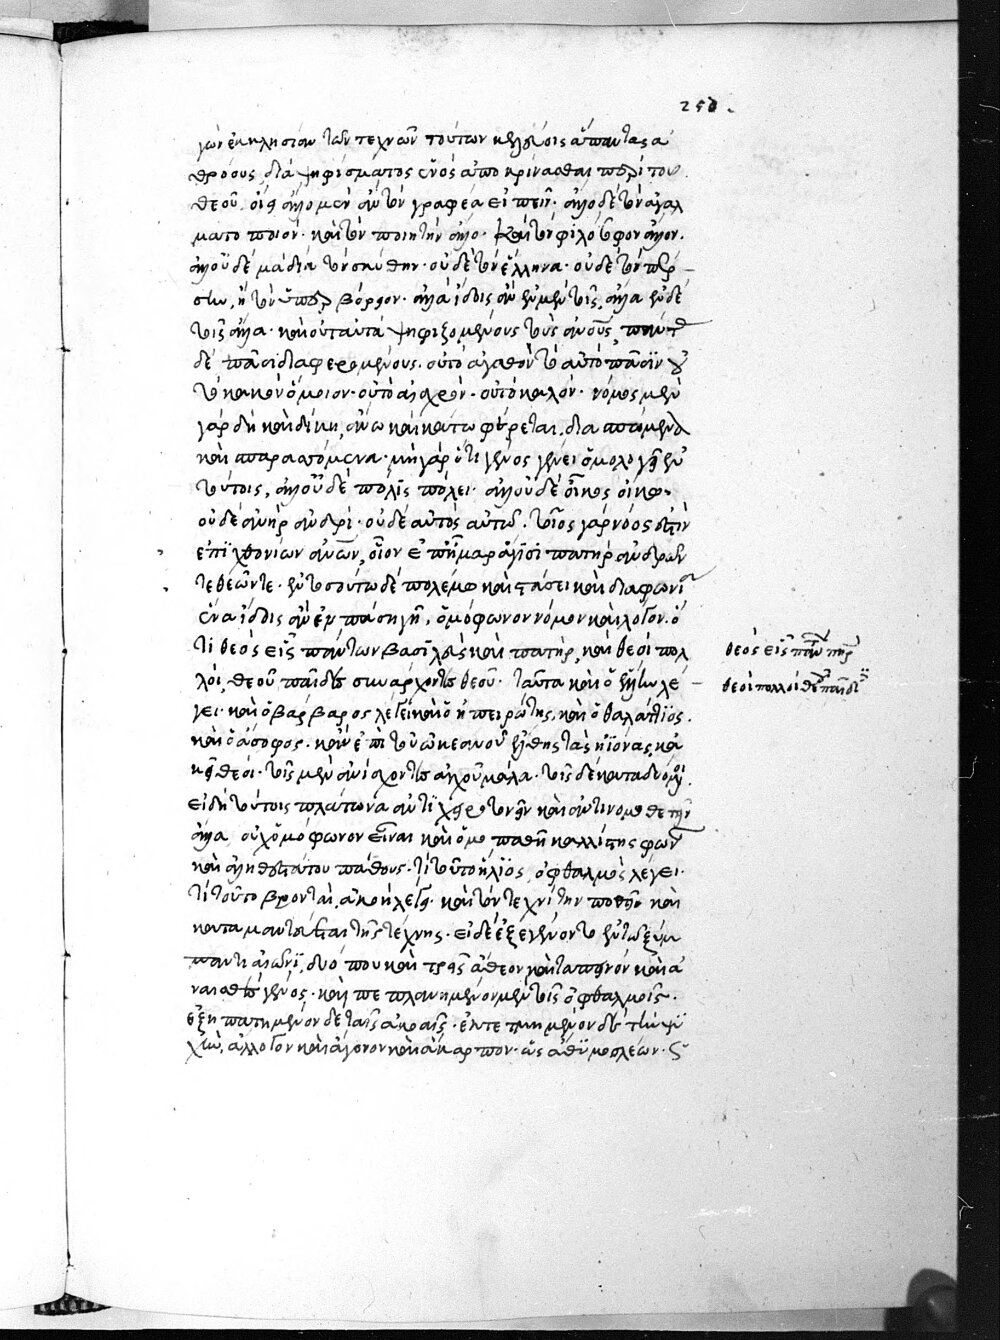 250.
γὼν ἐκκλησίαν τῶν τεχνῶν τούτων κελεύοις ἅπαντας ἀ
θρόους διὰ ψηφίσματος ἑνὸς ἀποκρίνασθαι περὶ τοῦ
θεοῦ. οἴει ἄλλο μὲν ἂν τὸν γραφέα εἰπεῖν. ἄλλο δὲ τὸν ἀγαλ
ματοποιόν. καὶ τὸν ποιητὴν ἄλλο. καὶ τὸν φιλόσοφον ἄλλον.
ἀλλ' οὐδὲ μὰ δία τὸν σκύθην. οὐδὲ τὸν ἕλληνα. οὐδὲ τὸν πέρ
σην, ἢ τὸν ὑπερβόρεον. ἀλλὰ ἴδοις ἂν ἐν μὲν τοῖς ἄλλα ἐν δὲ
τοῖς ἄλλα. καὶ οὐ ταὐτὰ ψηφιζομένους τοὺς ἀν̅ους, πάντας
δὲ πᾶσι διαφερομένους. οὐ τὸ ἀγαθὸν τὸ αὐτὸ πᾶσιν οὐ
τὸ κακὸν ὅμοιον. οὐ τὸ αἰσχρόν. οὐ τὸ καλόν. νόμος μὲν
γὰρ δὴ καὶ δίκη, ἄνω καὶ κάτω φέρεται, διασπώμενα
καὶ σπαρασσόμενα. μὴ γὰρ ὅτι γένος γένει ὁμολογεῖ ἐν
τούτοις, ἀλλ' οὐδὲ πόλις πόλει. ἀλλ' οὐδὲ οἶκος οἴκῳ.
οὐδὲ ἀνὴρ ἀνδρί. οὐδὲ αὐτὸς αὑτῷ. τοῖος γὰρ νόος ἐστὶν
ἐπιχθονίων ἀν̅ων, οἷον ἐπ' ἦμαρ ἄγῃσι πατὴρ ἀνδρῶν
τε θεῶν τε. ἐν τοσούτῳ δὲ πολέμῳ καὶ στάσει καὶ διαφωνίᾳ
ἕνα ἴδοις ἂν ἐν πάσῃ γῇ, ὁμόφωνον νόμον καὶ λόγον. ὅ
τι θεὸς εἷς πάντων βασιλεὺς καὶ πατήρ, καὶ θεοὶ πολ
λοί, θεοῦ παῖδες συνάρχοντες θεοῦ. ταῦτα καὶ ὁ ἕλλην λέ
γει. καὶ ὁ βάρβαρος λέγει καὶ ὁ ἠπειρώτης, καὶ ὁ θαλάττιος.
καὶ ὁ ἄσοφος. κἂν ἐπὶ τοῦ ὠκεανοῦ ἔλθῃς τὰς ἠϊόνας, κἀ
κεῖ θεοί. τοῖς μὲν ἀνίσχοντες ἀγχοῦ μάλα. τοῖς δὲ καταδυόμενοι.
εἰ δὴ τούτοις πλάτωνα ἀντιχειροτονεῖν καὶ ἀντινομοθετεῖν
ἀλλὰ οὐχ ὁμόφωνον εἶναι καὶ ὁμοπαθῆ καλλίστης φωνῆς
καὶ ἀληθεστάτου πάθους. τί τοῦτο ἥλιος, ὀφθαλμὸς λέγει.
τί τοῦτο βρονταὶ ἀκοὴ λέγει. καὶ τὸν τεχνίτην ποθεῖ καὶ
καταμαντεύεται τῆς τέχνης. εἰ δὲ ἐξεγένοντο ἐν τῷ ξύμ
παντι αἰῶνι, δύο που καὶ τρεῖς ἄθεον καὶ ταπεινὸν καὶ ἀ
ναισθὲς γένος. καὶ πεπλανημένον μὲν τοῖς ὀφθαλμοῖς.
ἐξηπατημένον δὲ ταῖς ἀκοαῖς. ἐκτετμημένον δὲ τὴν ψυ
χὴν, ἄλογον καὶ ἄγονον καὶ ἄκαρπον. ὡς ἄθυμος λέων. ϛ
θεὸς εἷς πάντων πηρ
θεοὶ πολλοὶ θ̅υ παῖδες